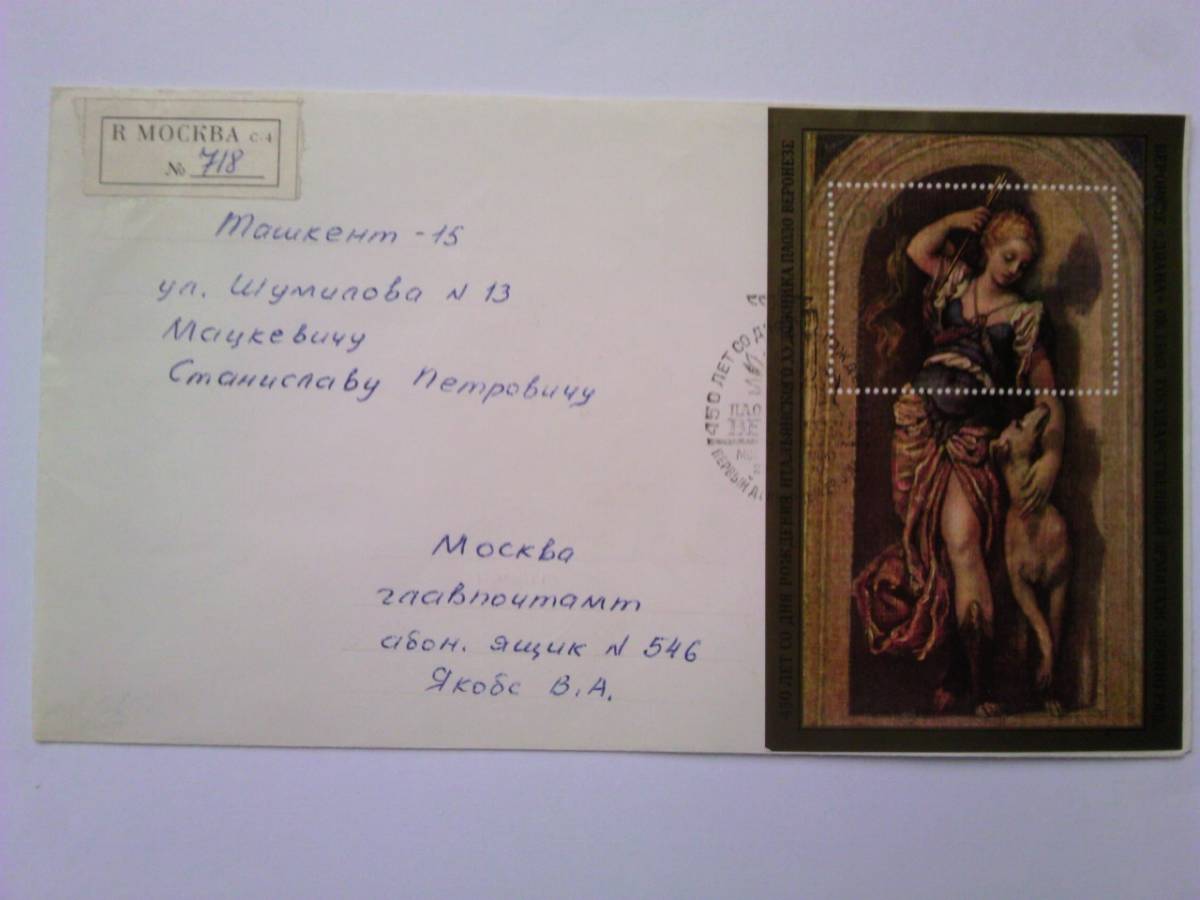 R МОСКВА С-4
№ 718
Ташкент - 15
ул. Шумилова N 13
Мацкевичу
Станиславу Петровичу
Москва
главпочтамт
абон. ящик N 546
Якобс В.А.
450 ЛЕТ СО
450 ЛЕТ СО ДНЯ РОЖДЕНИЯ ИТАЛЬЯНСКОГО ХУДОЖНИКА ПАОЛО ВЕРОНЕЗЕ